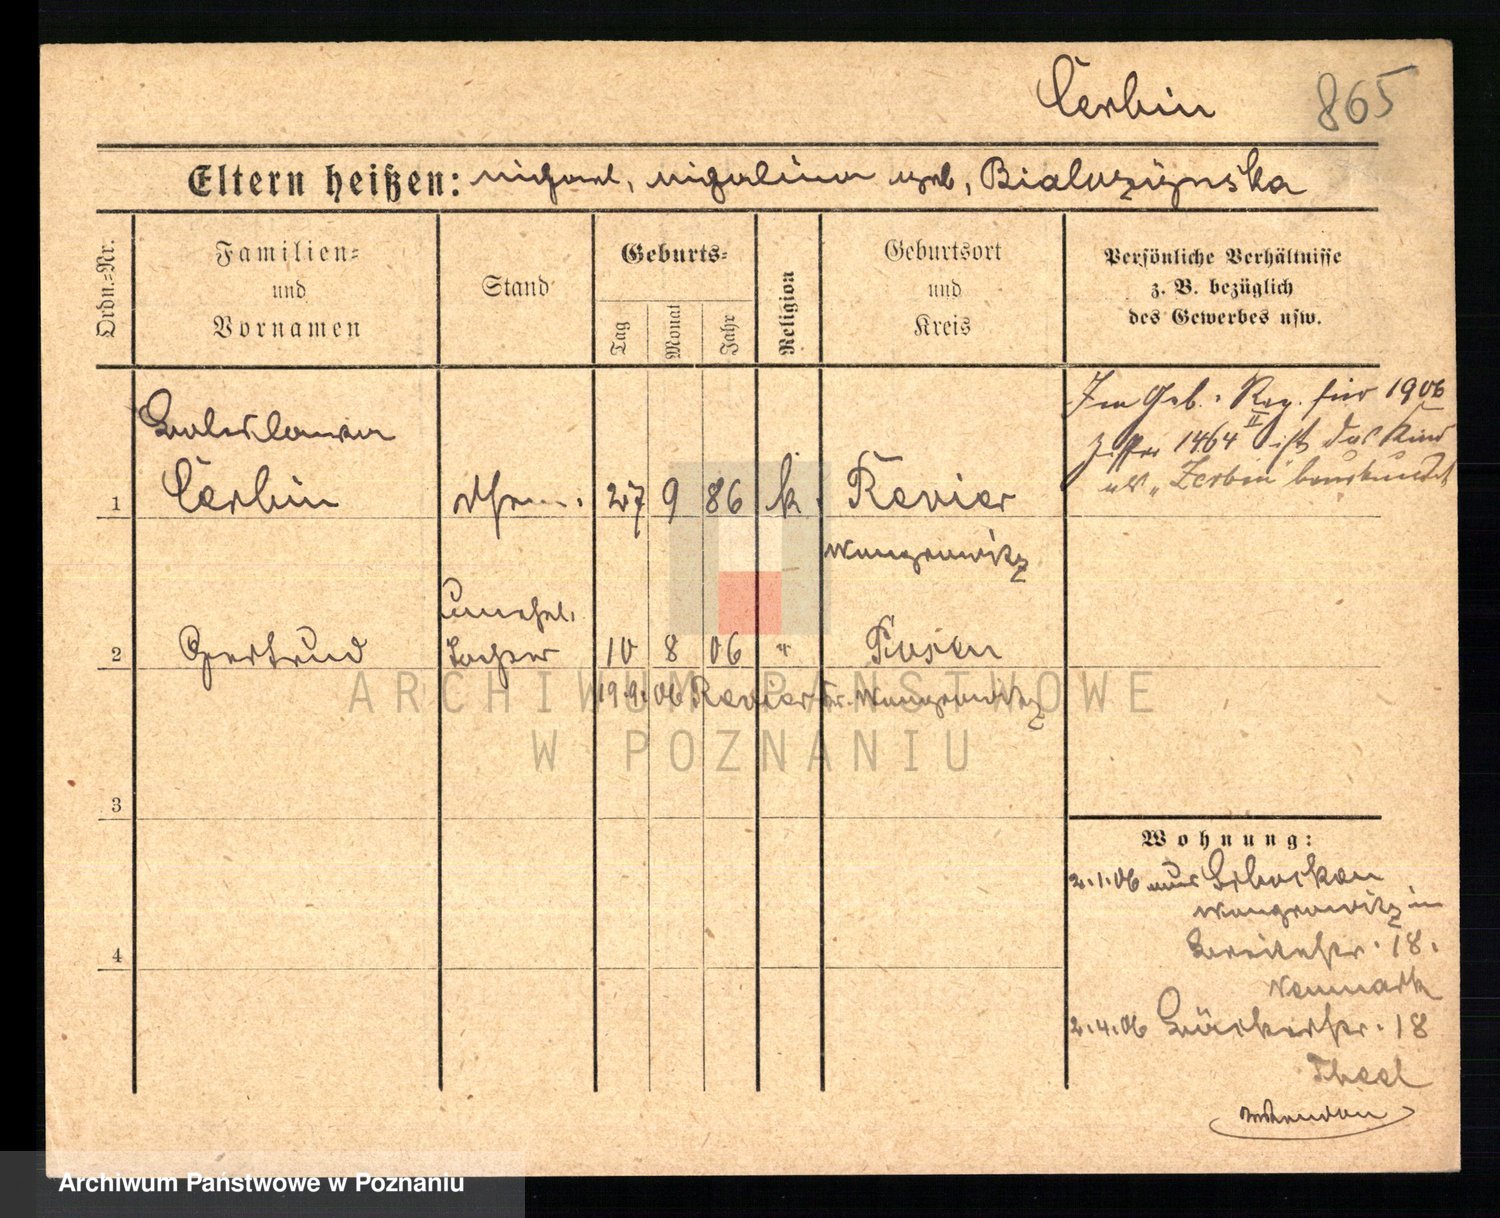 Cerbin 865
Eltern heißen: Michael, Michalina geb, Bialozÿnska
Ordn.=Nr.
Familien=
und
Vornamen
Stand
Geburts=
Tag
Monat
Jahr
Religion
Geburtsort
und
Kreis
Persönliche Verhältnisse
z. B. bezüglich
des Gewerbes usw.
Im Geb. Reg. für 1906
II
Ziffer 1464 ist das Kind
als „Zerbin" beurkundet
Boleslawa
1 Cerbin 27 9 86 k. Revier
Wongrowitz
unehel.
2 Gertrud Tochter 10 8 06 " Posen
19.9.06 Revier Kr. Wongrowitz
3
4
Wohnung:
2.1.06 aus
Wongrowitz in
Breitestr. 18.
Neumark
2.4.06 Bäckerstr. 18
Theel
ARCHIWUM PAŃSTWOWE
W POZNANIU
Archiwum Państwowe w Poznaniu